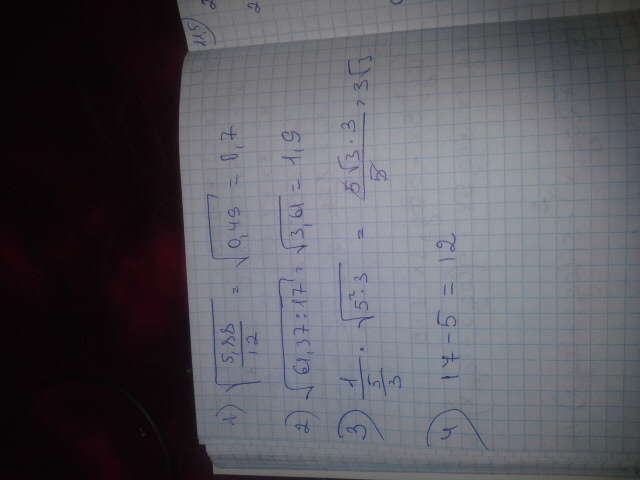 1) √(5,88/12) = √0,49 = 0,7
11.5)
2) √(61,37:17) = √3,61 = 1,9
3) 1/(5/3) · √(5²·3) = 5√3·3/5 = 3√3
4) 17-5 = 12